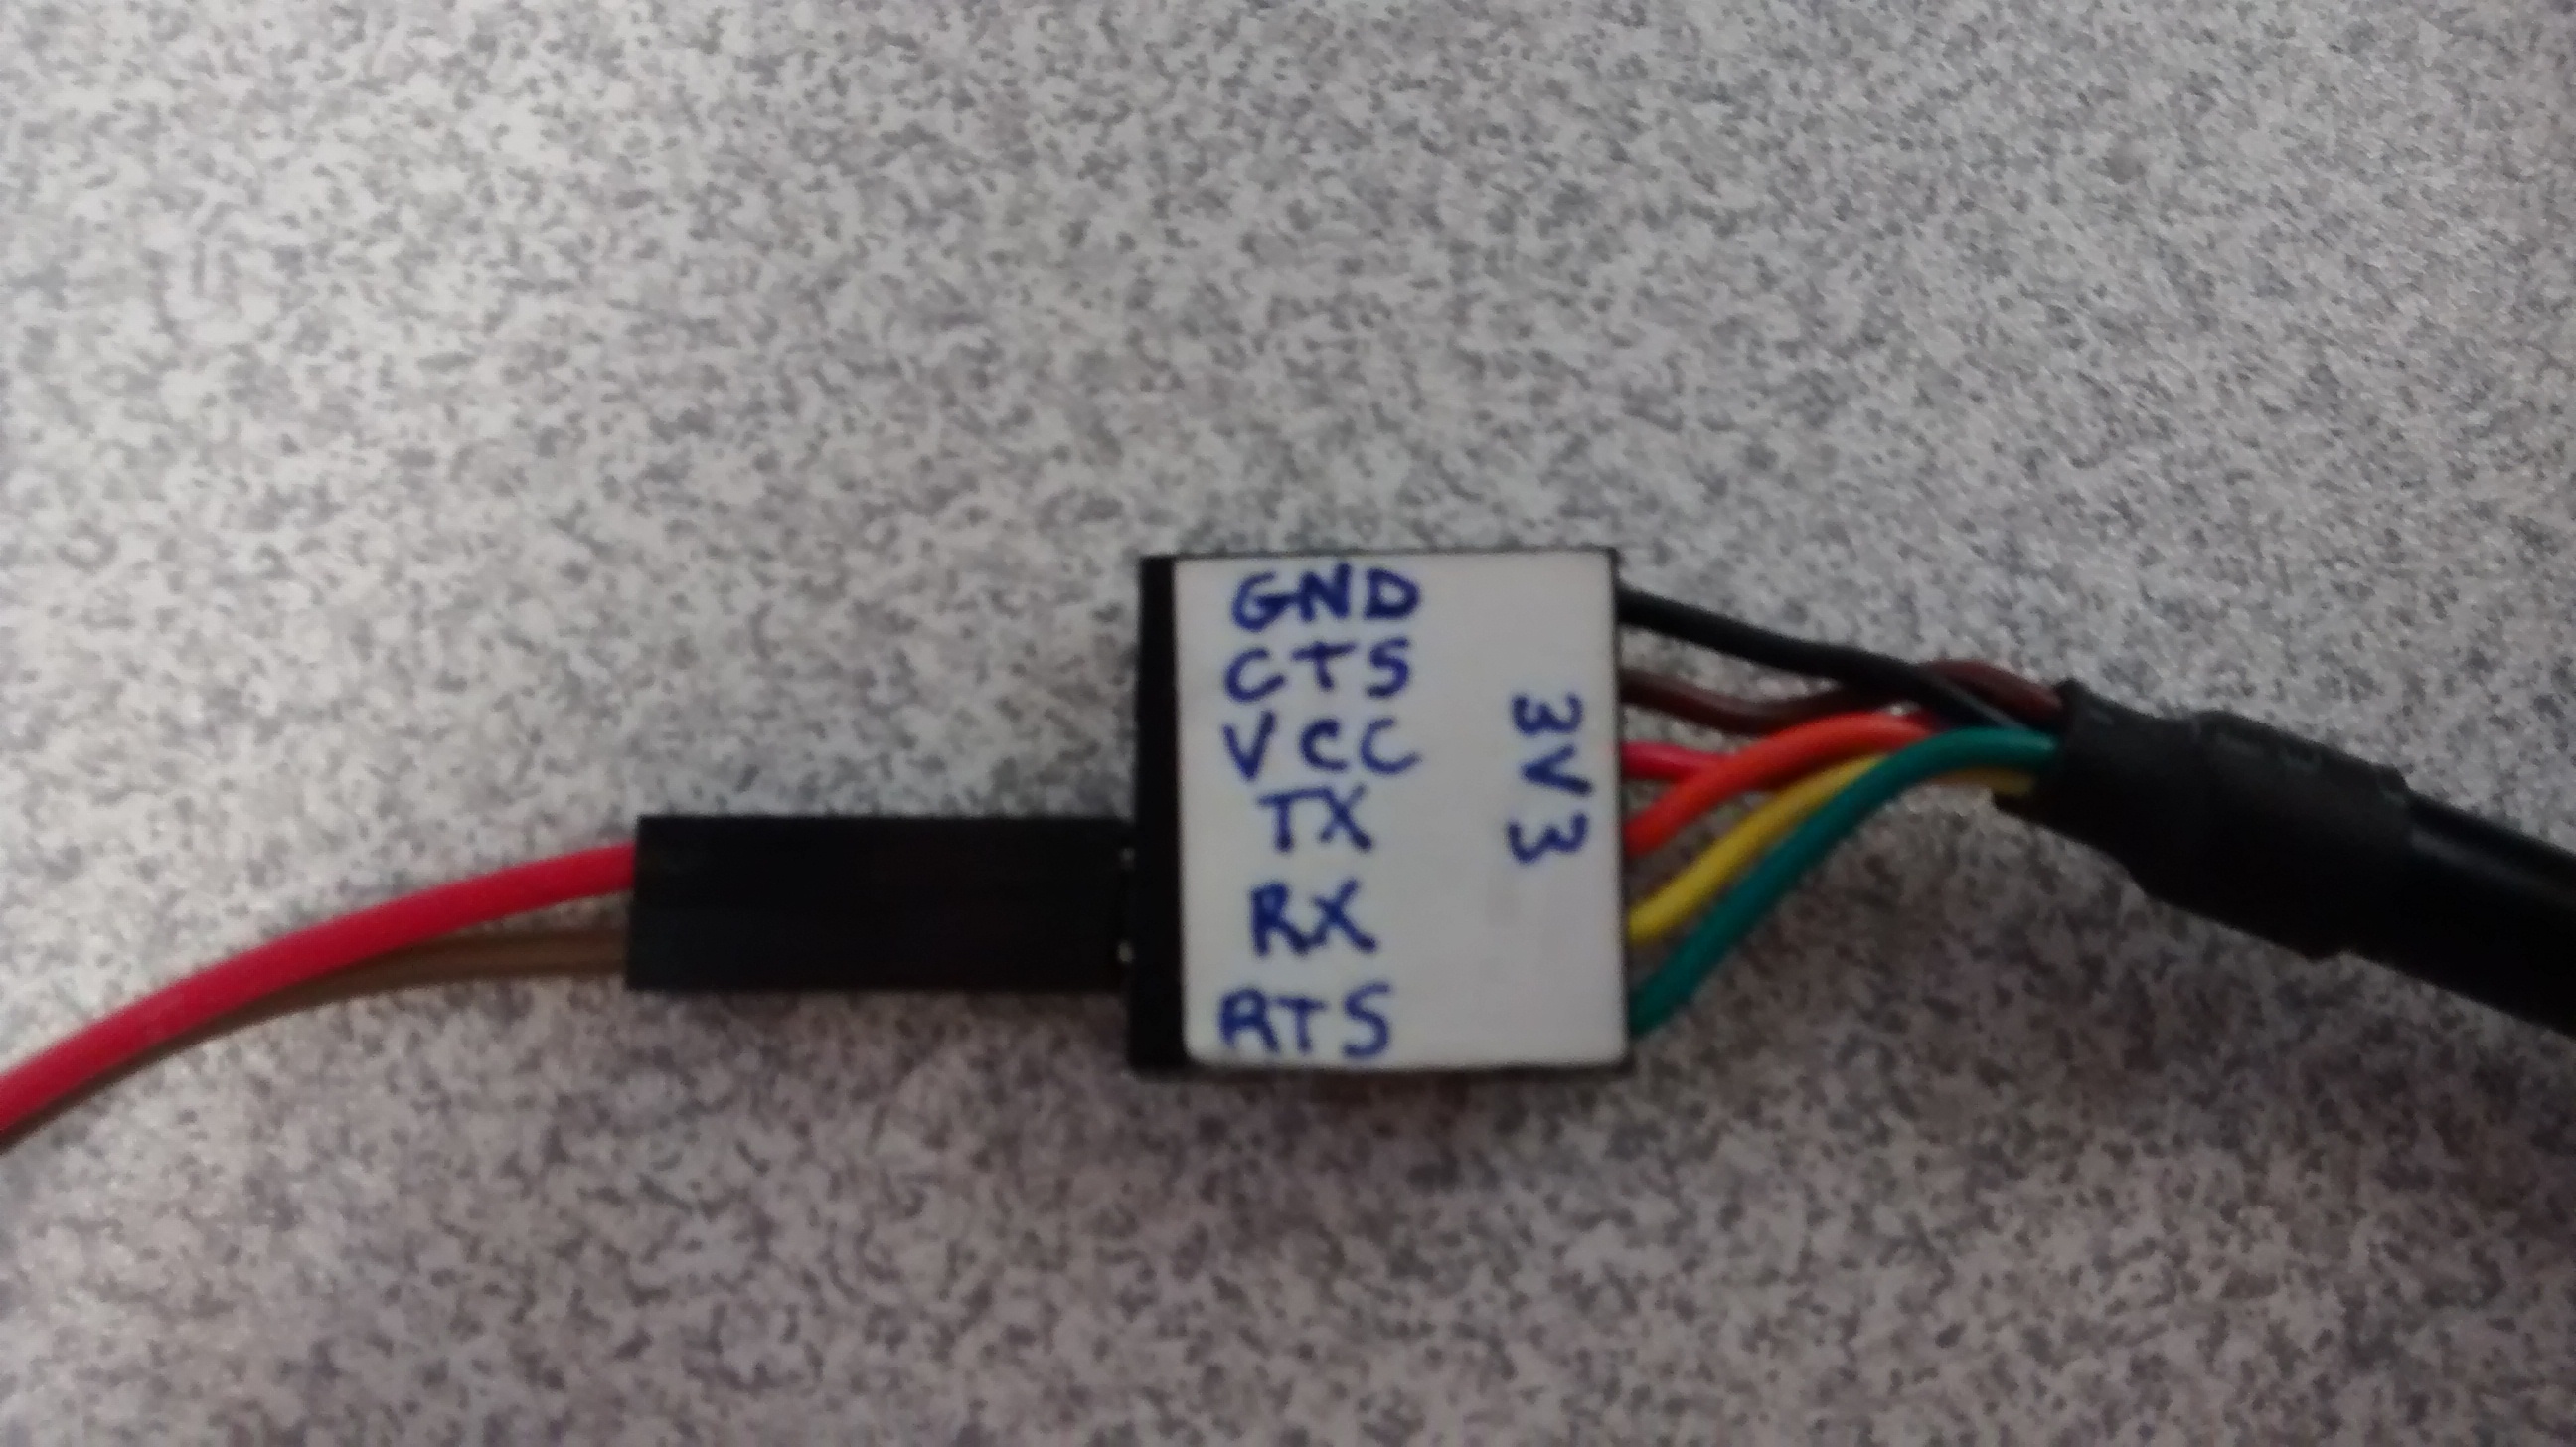 GND
CTS
VCC
TX
RX
RTS
3V3